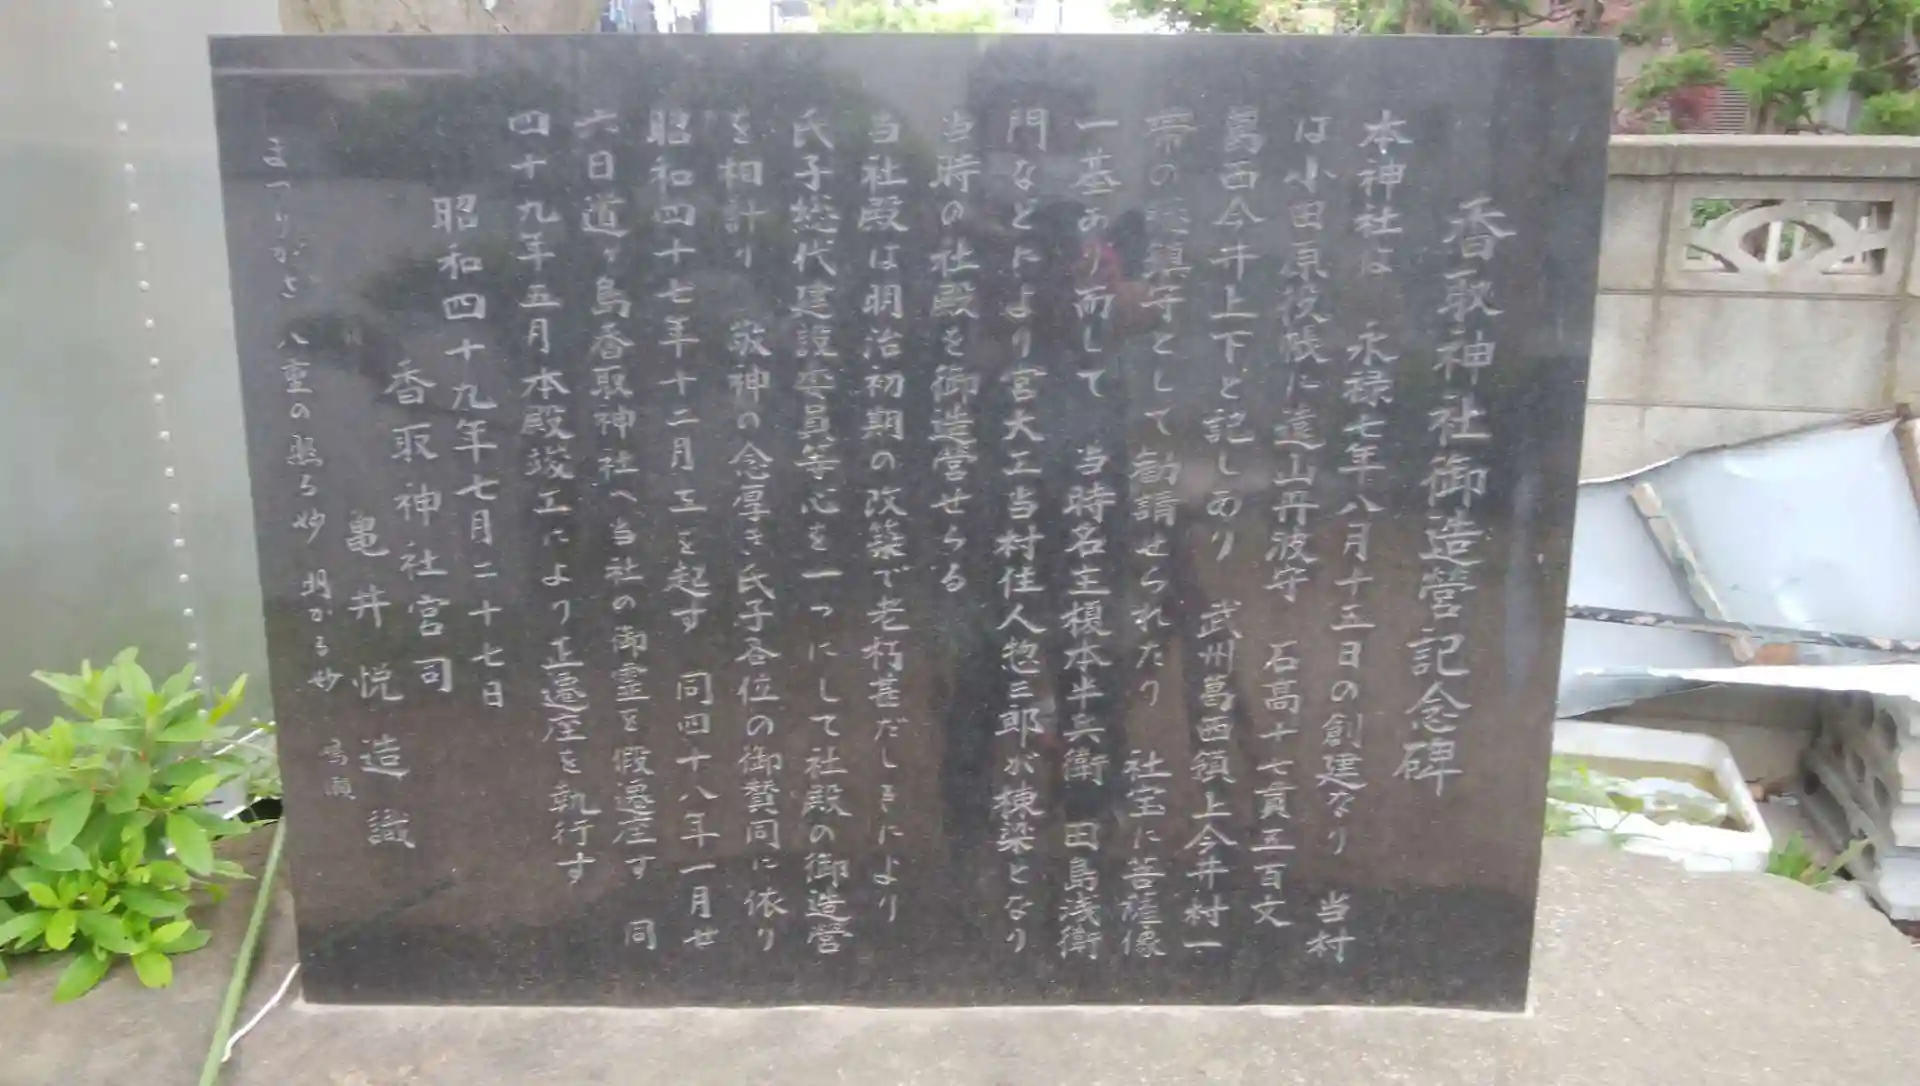 香取神社御造営記念碑
本神社は 永禄七年八月十五日の創建なり 当村
は小田原役帳に遠山丹波守 石高十七貫五百文
葛西今井上下と記しあり 武州葛西領上今井村一
帯の総鎮守として勧請せられたり 社宝に菩薩像
一基あり而して 当時名主榎本半兵衛 田島浅衛
門などにより宮大工当村住人惣三郎が棟梁となり
当時の社殿を御造営せらる
当社殿は明治初期の改築で老朽甚だしきにより
氏子総代建設委員等心を一つにして社殿の御造営
を相計り 敬神の念厚き氏子各位の御賛同に依り
昭和四十七年十二月工を起す 同四十八年一月廿
六日道ヶ島香取神社へ当社の御霊を假遷座す 同
四十九年五月本殿竣工により正遷座を執行す
昭和四十九年七月二十七日
香取神社宮司
亀井悦造識